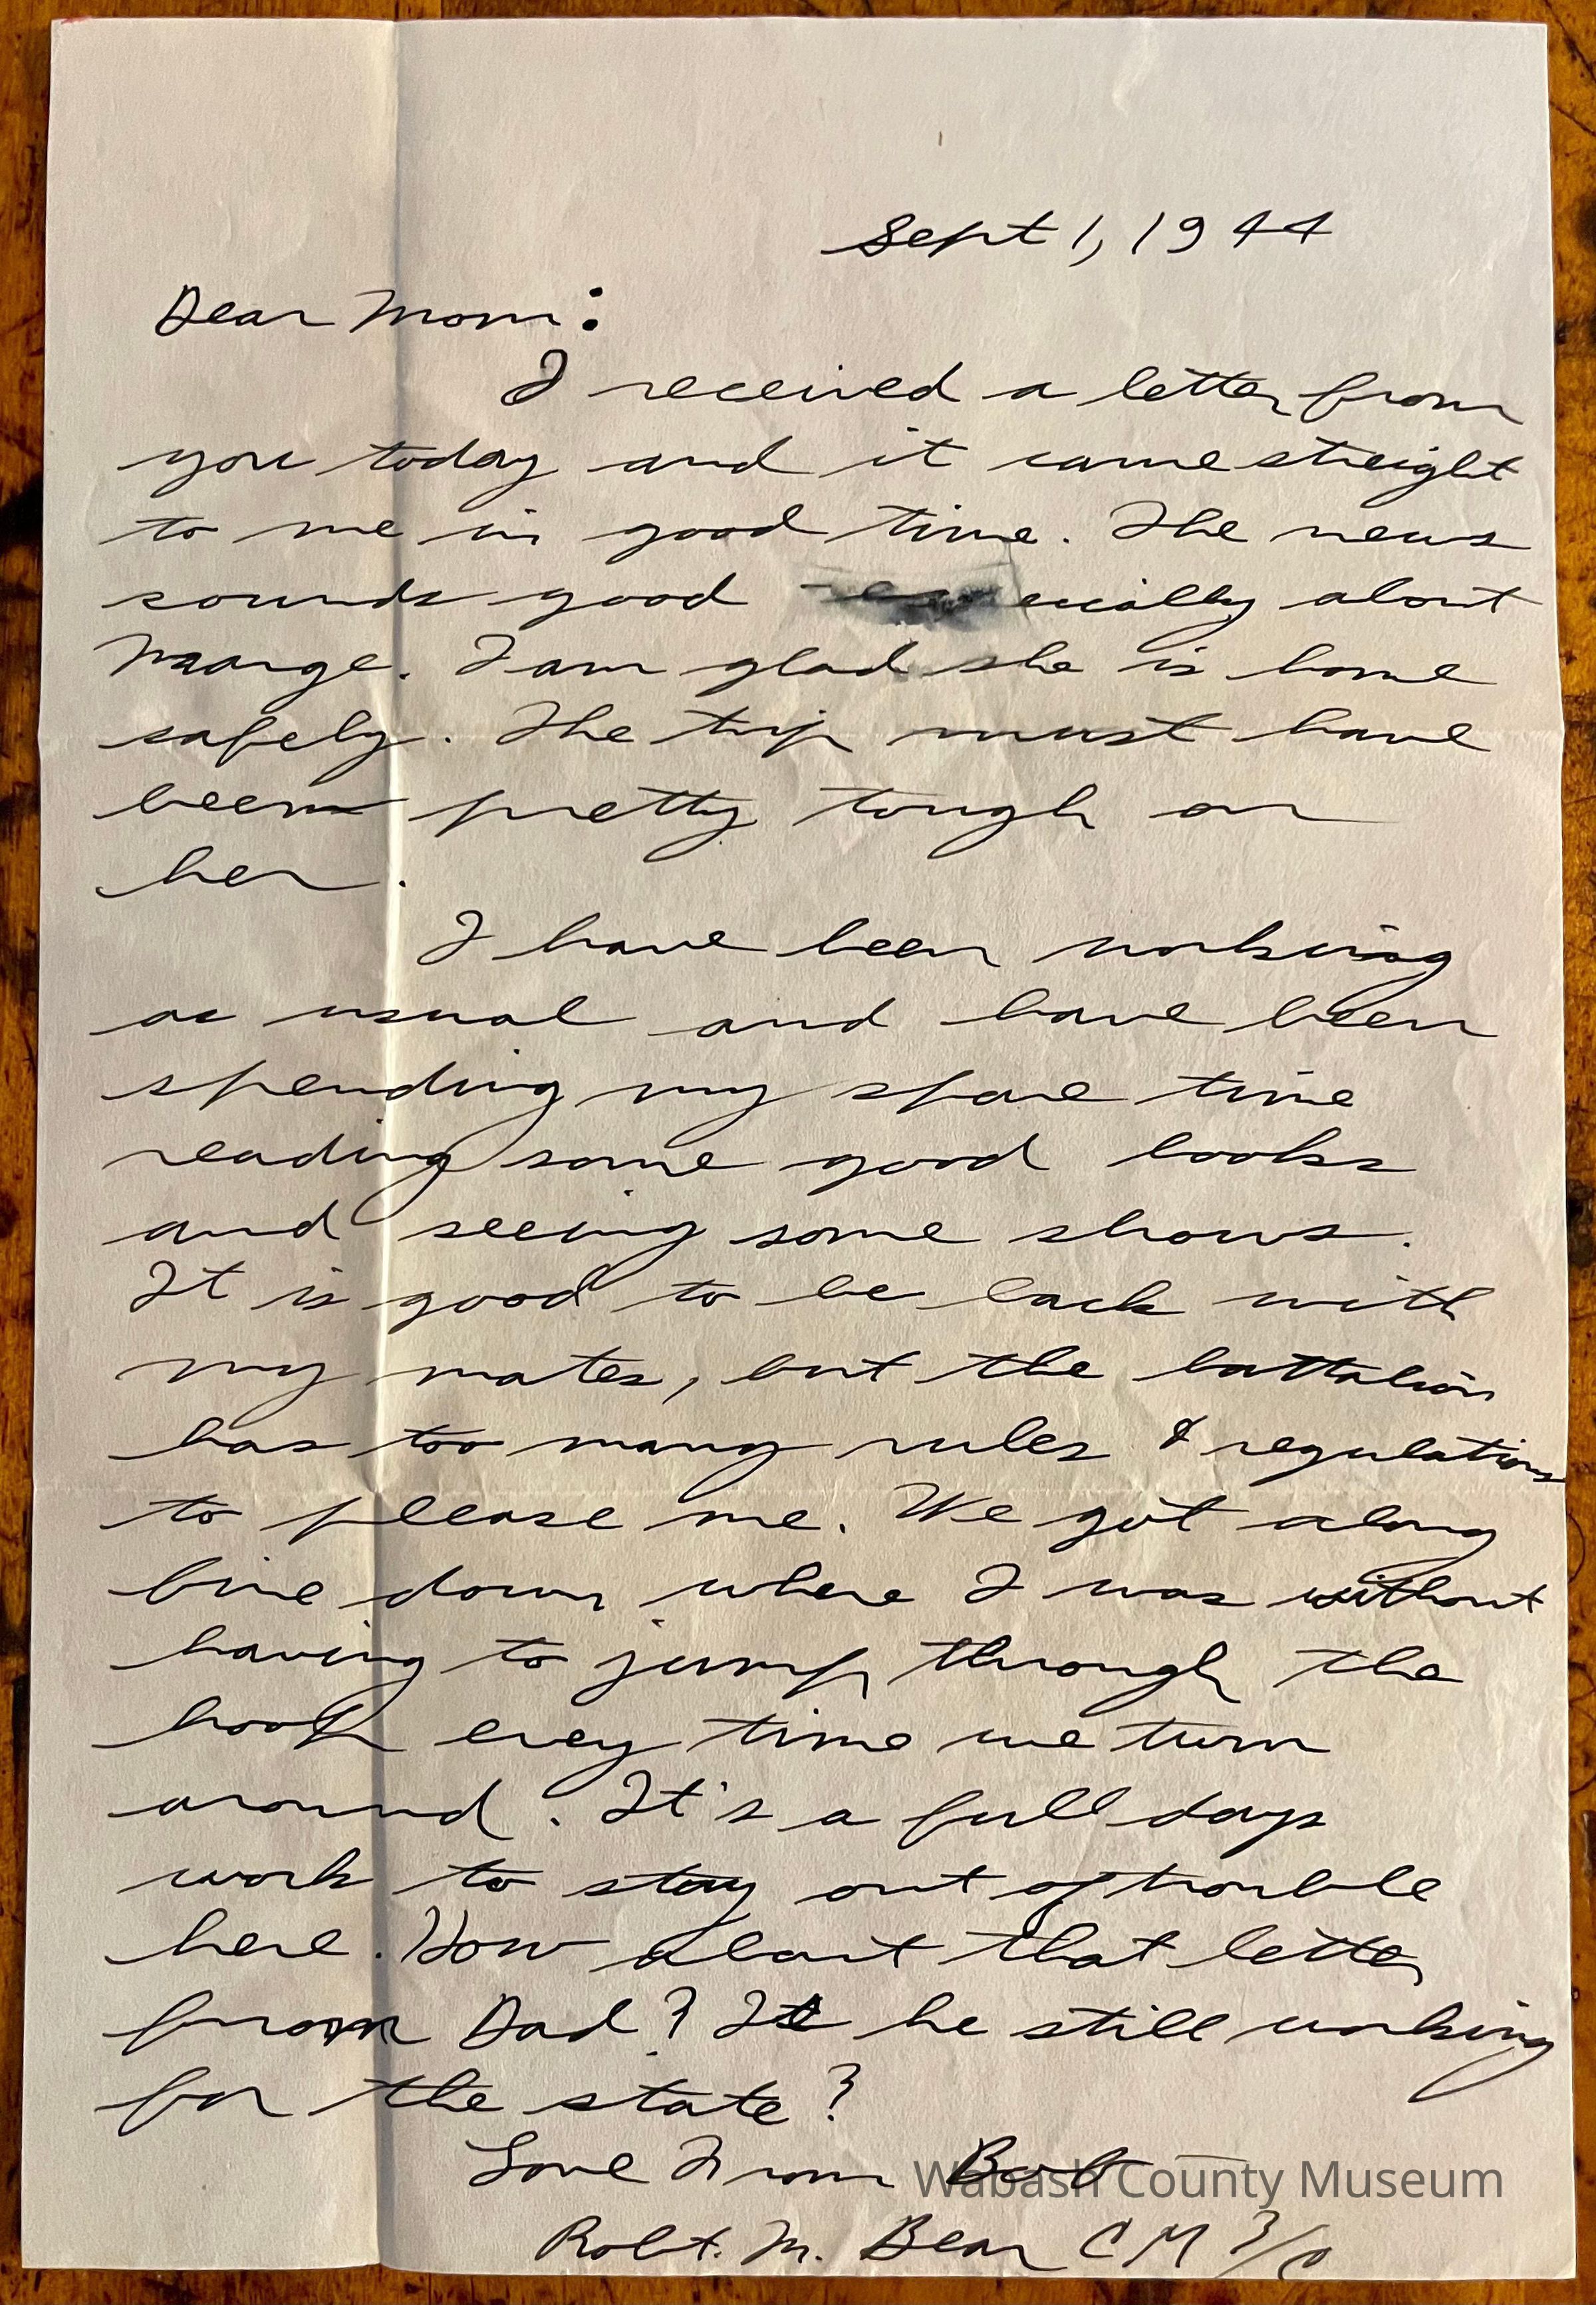 Sept 1, 1944
Dear Mom:
I received a letter from
you today and it came streight
to me in good time. The news
sounds good ecially about
Marge. I am glad she is home
safely. The trip must have
been pretty tough on
her.
I have been working
as usual and have been
spending my spare time
reading some good books
and seeing some shows.
It is good to be back with
my mates, but the battalion
has too many rules & regulations
to please me. We got along
fine down where I was without
having to jump through the
hoop every time we turn
around. It's a full days
work to stay out of trouble
here. How about that letter
from Dad? Is he still working
for the state?
Love From Bob
Wabash County Museum
Robt. M. Bear CM 3/c